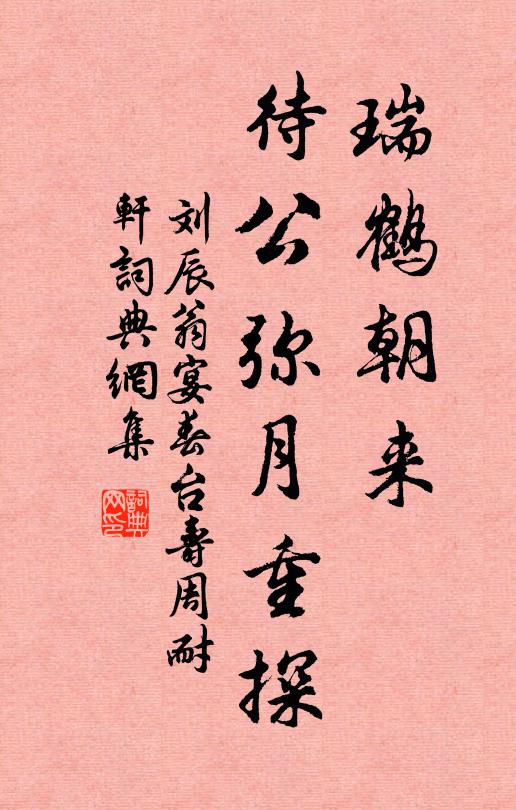 瑞鹤朝来
待公弥月重探
刘辰翁宴春台寿周耐
軒詞典網集
詞典网印